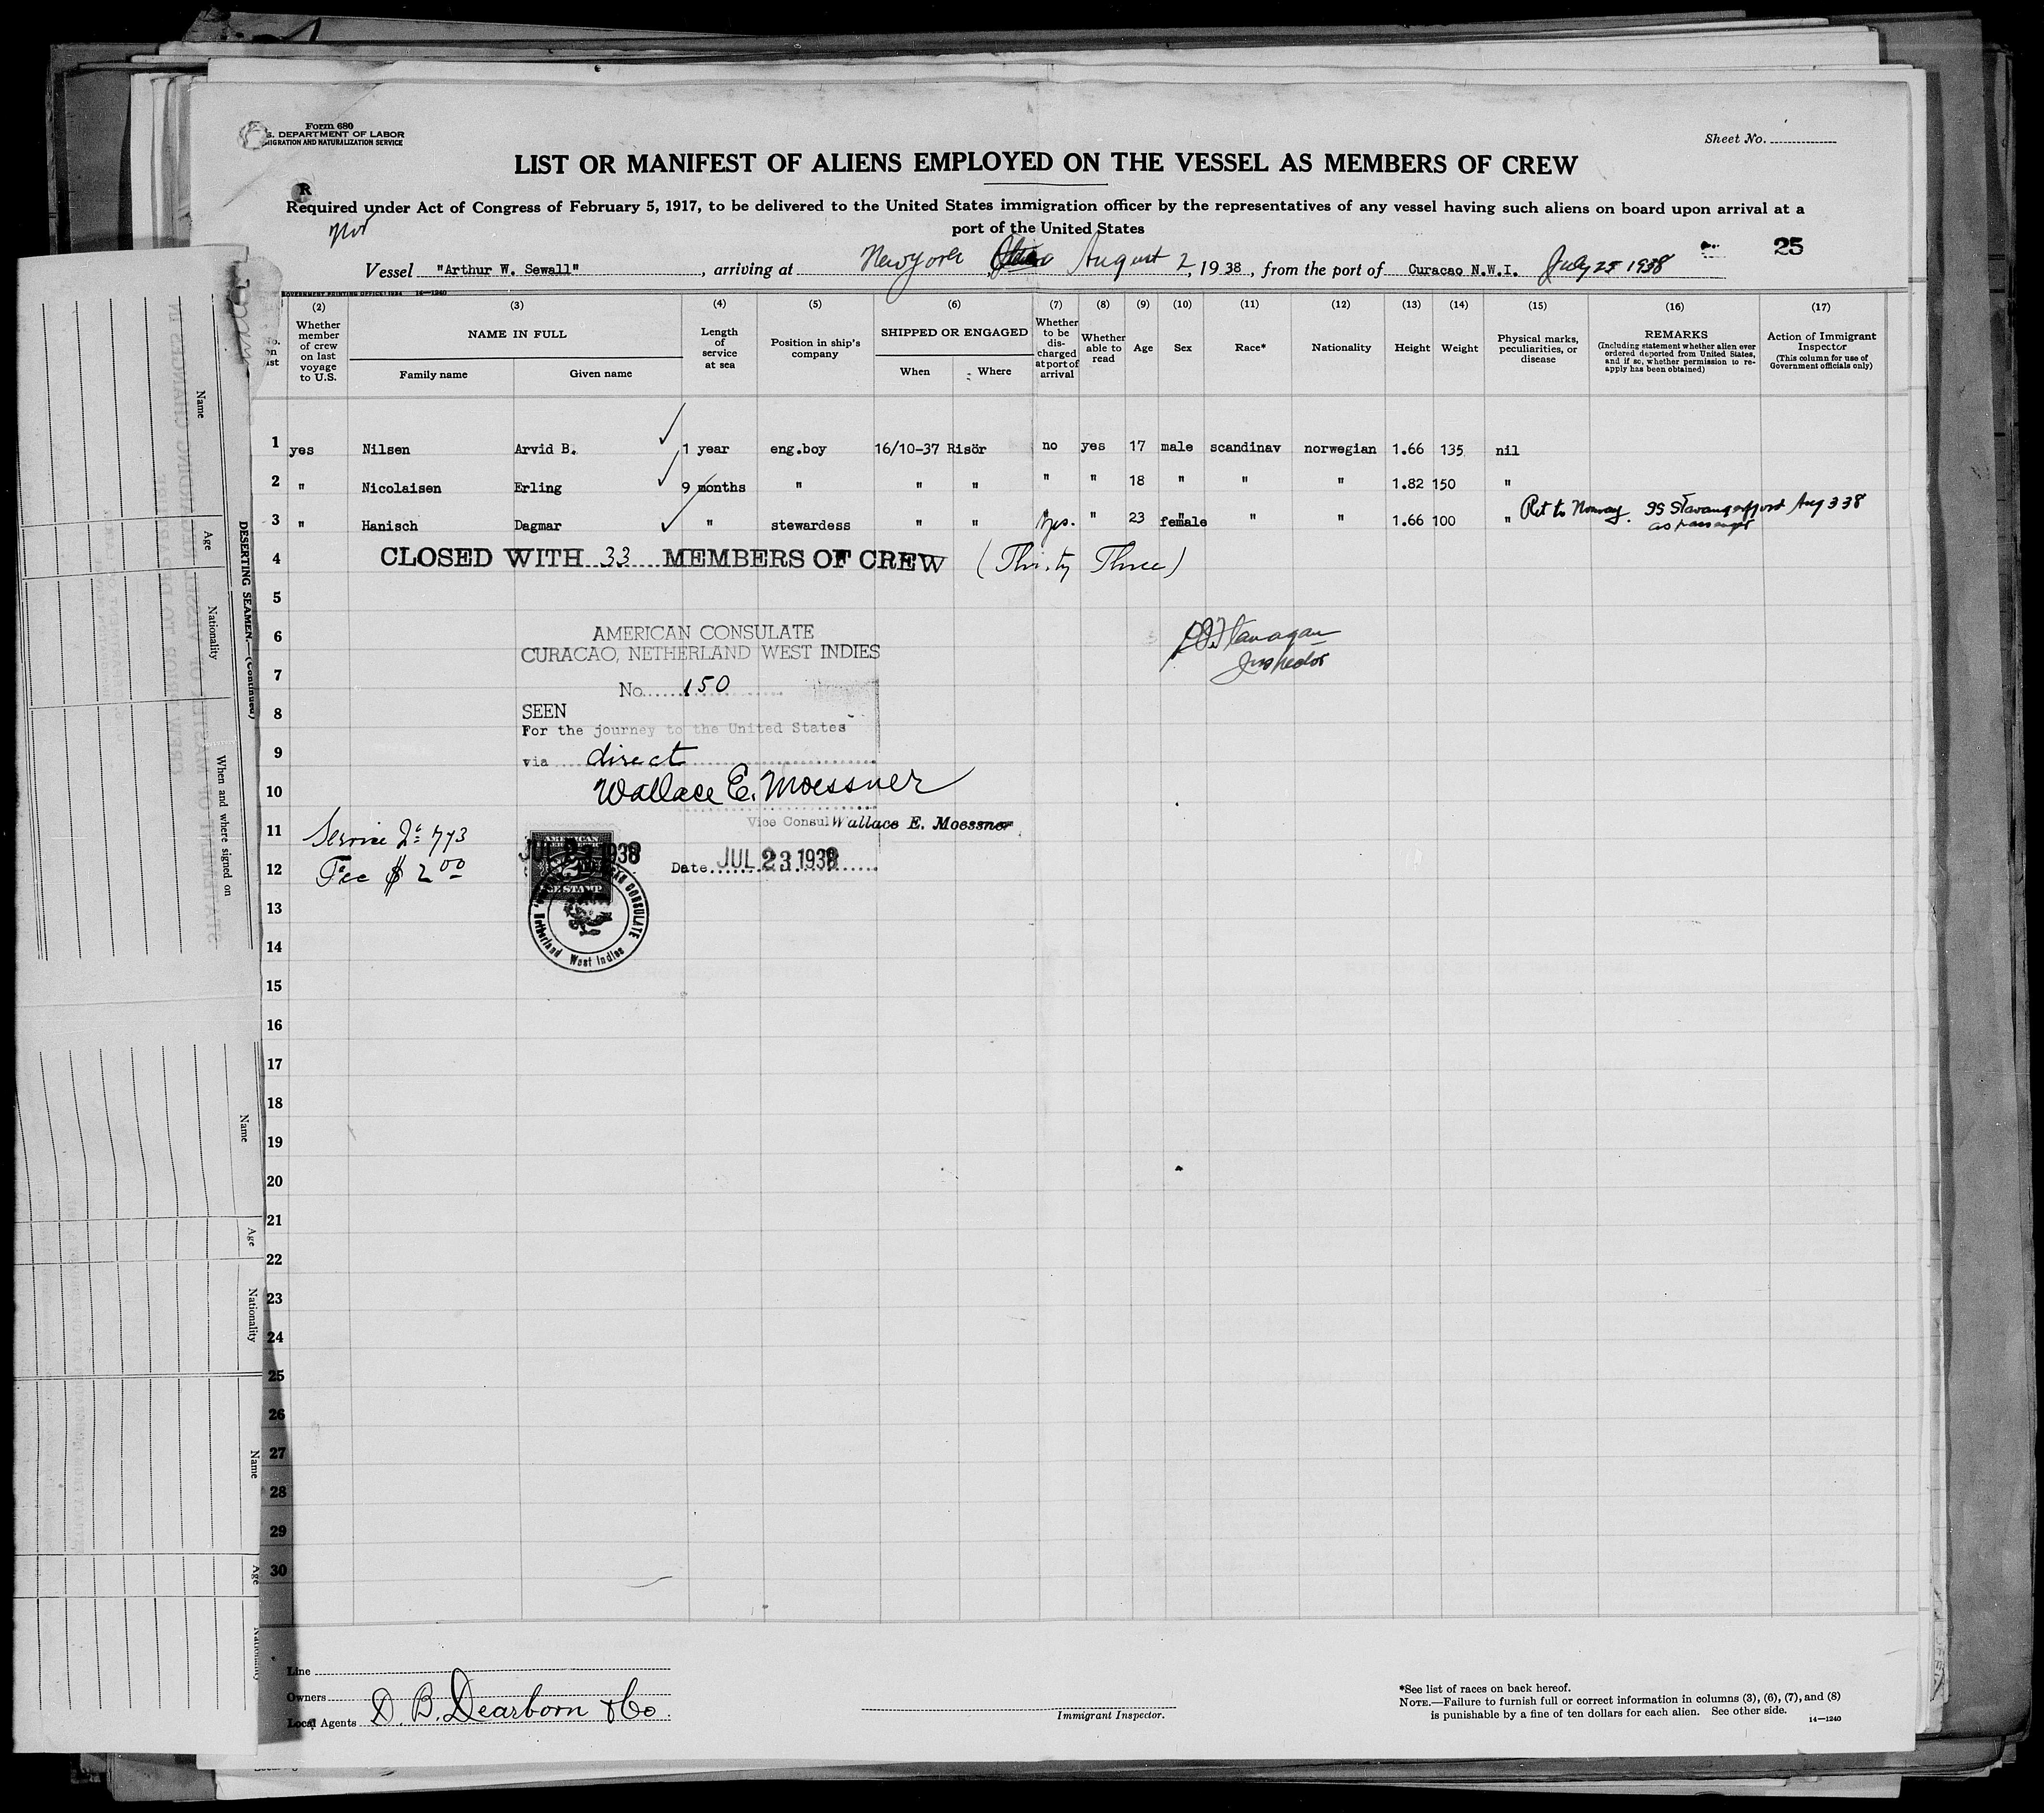 Form 680
S. DEPARTMENT OF LABOR
MIGRATION AND NATURALIZATION SERVICE
Sheet No.
LIST OR MANIFEST OF ALIENS EMPLOYED ON THE VESSEL AS MEMBERS OF CREW
R
Required under Act of Congress of February 5, 1917, to be delivered to the United States immigration officer by the representatives of any vessel having such aliens on board upon arrival at a
port of the United States
Nor
25
Vessel "Arthur W. Sewall", arriving at New york August 2, 1938, from the port of Curacao N.W.I. July 25 1938
GOVERNMENT PRINTING OFFICE: 1934 14—1240
(2) (3) (4) (5) (6) (7) (8) (9) (10) (11) (12) (13) (14) (15) (16) (17)
No. on list
Whether member of crew on last voyage to U.S.
NAME IN FULL
Family name Given name
Length of service at sea
Position in ship's company
SHIPPED OR ENGAGED
When Where
Whether to be discharged at port of arrival
Whether able to read
Age
Sex
Race*
Nationality
Height
Weight
Physical marks, peculiarities, or disease
REMARKS
(Including statement whether alien ever ordered deported from United States, and if so, whether permission to reapply has been obtained)
Action of Immigrant Inspector
(This column for use of Government officials only)
1 yes Nilsen Arvid B. 1 year eng.boy 16/10-37 Risör no yes 17 male scandinav norwegian 1.66 135 nil
2 " Nicolaisen Erling 9 months " " " " " 18 " " " 1.82 150 "
3 " Hanisch Dagmar " stewardess " " yes. " 23 female " " 1.66 100 " Ret to Norway. SS Stavangerfjord Aug 3 38
as passenger
4 CLOSED WITH 33 MEMBERS OF CREW (Thirty Three)
5
6 AMERICAN CONSULATE
CURACAO, NETHERLAND WEST INDIES
Flanagan
Inspector
7 No. 150
8 SEEN
For the journey to the United States
9 via direct
10 Wallace E. Moessner
Vice Consul Wallace E. Moessner
11 Service No 773
JUL 23 1938
12 Fee $ 2 00
Date JUL 23 1938
FEE STAMP
CONSULATE
Netherland West Indies
13
14
15
16
17
18
19
20
21
22
23
24
25
26
27
28
29
30
Line
Owners
Local Agents D. B. Dearborn & Co.
Immigrant Inspector.
*See list of races on back hereof.
NOTE.—Failure to furnish full or correct information in columns (3), (6), (7), and (8)
is punishable by a fine of ten dollars for each alien. See other side.
14—1240
DESERTING SEAMEN.—(Continued)
Name
Age
Nationality
When and where signed on
Name
Age
Nationality
Name
Age
Nationality